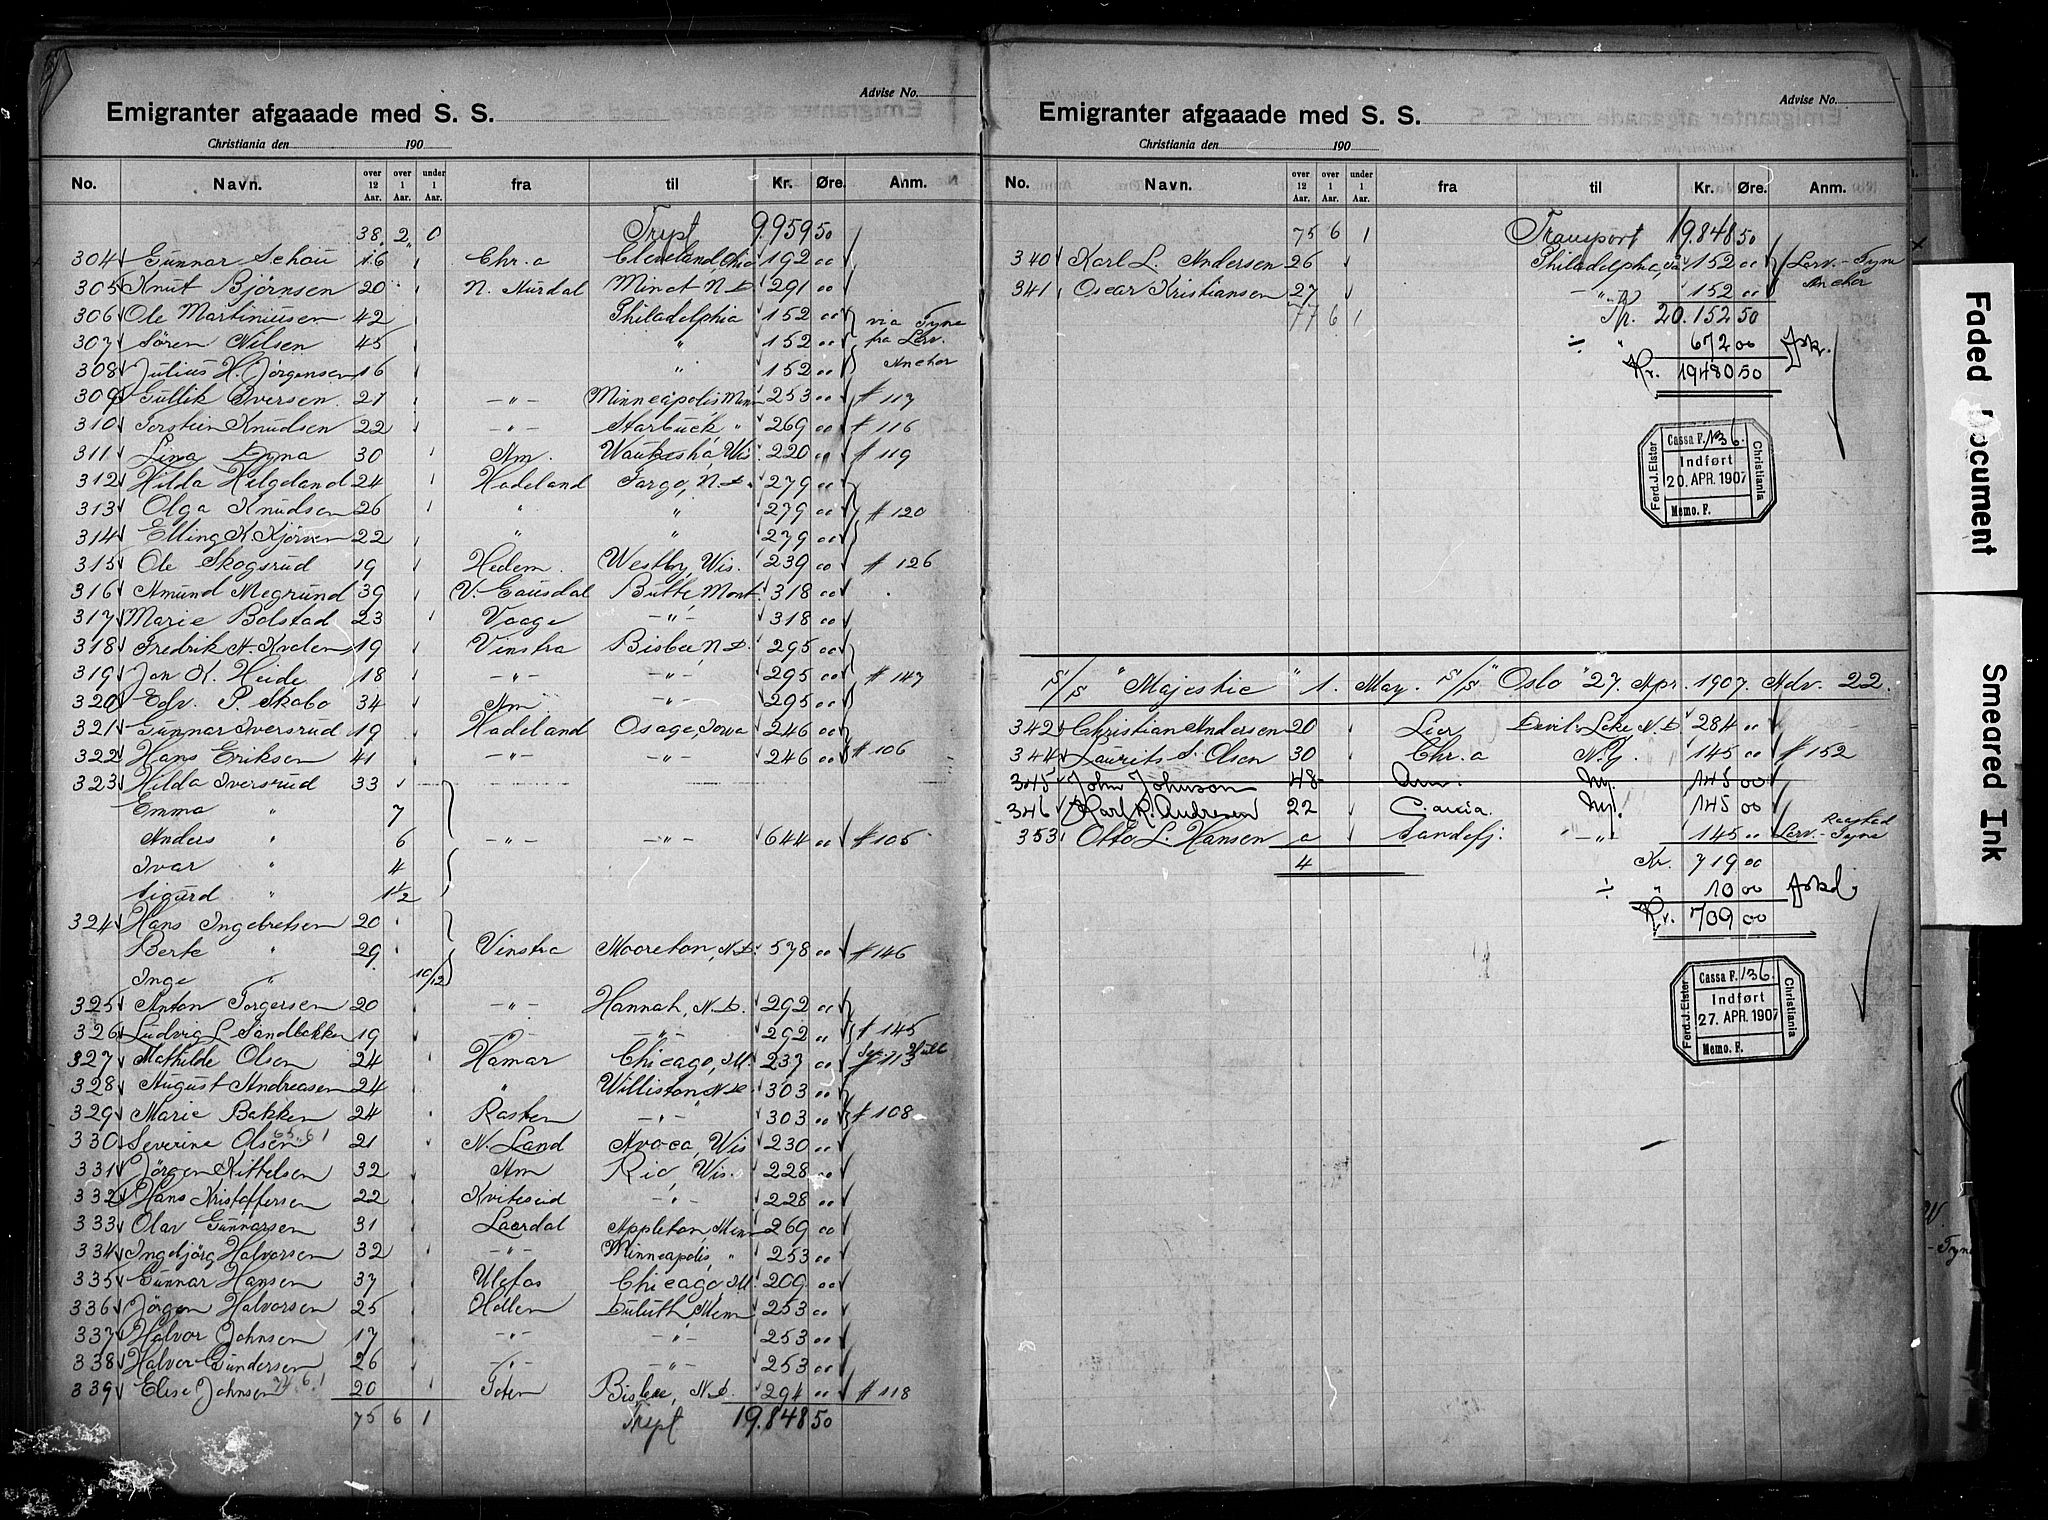 Advise No.
Emigranter afgaaade med S. S.
Christiania den 190
No. Navn. over 12 Aar. over 1 Aar. under 1 Aar. fra til Kr. Øre. Anm.
38 2 0 Trspt 9.959 50
304 Gunnar Schou 16 Chr.a Cleveland, Ohio 192 00
305 Knut Björnsen 20 N. Aurdal Minot N.D. 291 00
306 Ole Martiniusen 42 Philadelphia 152 00 via Tyne
307 Sören Nilsen 45 " 152 00 fra Larv.
308 Julius H. Jörgensen 16 " 152 00 Anchor
309 Gullik Iversen 21 -"- Minneapolis Minn 253 00 # 117
310 Torstein Knudsen 22 -"- Starbuck " 269 00 # 116
311 Lina 30 Am. Waukesha, Wis 220 00 # 119
312 Hilda Helgeland 24 Hadeland Fargo, N.D. 279 00
313 Olga Knudsen 26 " " 279 00 # 120
314 Elling K. Kjörven 22 " " 279 00
315 Ole Skogsrud 19 Hedem. Westby, Wis. 239 00 # 126
316 Amund Megrund 39 V. Gausdal Butte, Mont. 318 00
317 Marie Bolstad 23 Vaage -"- 318 00
318 Fredrik A. Kvalen 19 Vinstra Bisbee, N.D. 295 00
319 Jan K. Heide 18 -"- -"- 295 00 # 147
320 Edv. P. Skabo 34 Am. -"- 295 00
321 Gunnar Iversrud 19 Hadeland Osage, Iowa 246 00
322 Hans Eriksen 41 -"- -"- 246 00 # 106
323 Hilda Iversrud 33
Emma " 7
Anders " 6 -"- -"- 644 00 # 105
Ivar " 4
Sigurd " 1 1/2
324 Hans Ingebretsen 20
Berte " 29 Vinstra Mooreton, N.D. 578 00 # 146
Inge " 10/12
325 Anton Torgersen 20 -"- Hannah, N.D. 292 00
326 Ludvig L. Sandbakken 19 -"- -"- 292 " # 145
327 Mathilde Olsen 24 Hamar Chicago, Ill. 237 00 # 113 Hull
328 August Andreasen 24 " Williston N.D. 303 00
329 Marie Bakken 24 Rasten -"- 303 00 # 108
330 Severine Olsen 21 N. Land Avoca, Wis 230 00
331 Jörgen Kittelsen 32 Am Rio, Wis. 228 00
332 Hans Kristoffersen 22 Kviteseid -"- 228 00
333 Olav Gunnarsen 31 Laerdal Appleton, Minn 269 00
334 Ingebjörg Halvorsen 32 -"- Minneapolis, " 253 00
335 Gunnar Hansen 37 Ulefos Chicago, Ill. 209 00
336 Jörgen Halvorsen 25 Hollen Duluth Minn 253 00
337 Halvor Johnsen 17 -"- -"- 253 00
338 Halvor Gundersen 26 -"- -"- 253 00
339 Elise Johnsen 20 Toten Bisbee, N.D. 294 00 # 118
75 6 1 Trspt 19.848 50
Advise No.
Emigranter afgaaade med S. S.
Christiania den 190
No. Navn. over 12 Aar. over 1 Aar. under 1 Aar. fra til Kr. Øre. Anm.
75 6 1 Transport 19.848 50
340 Karl L. Andersen 26 Philadelphia, Pa 152 00 Larv.-Tyne
341 Oscar Kristiansen 27 -"- 152 00 Anchor
77 6 1 Kr. 20.152 50
÷ " 672 00 Afsk.
Kr. 19480 50
Ferd. J. Elster Cassa F. 136. Christiania
Indført
20. APR. 1907
Memo. F.
S/S "Majestic" 1. May. S/S "Oslo" 27. Apr. 1907. Adv. 22.
342 Christian Andersen 20 Lier Devils Lake, N.D. 284 00
344 Laurits S. Olsen 30 Chr.a N.Y. 145 00 # 152
345 John Johnson 48 Am. Ny. 145 00
346 Karl R. Andresen 22 C.ania Ny. 145 00
353 Otto L. Hansen a Sandefj. -"- 145 00 Larv.-Tyne
4 Kr. 719 00
÷ " 10 00 Afskd.
Kr. 709 00
Ferd. J. Elster Cassa F. 136. Christiania
Indført
27. APR. 1907
Memo. F.
Faded Document
Smeared Ink